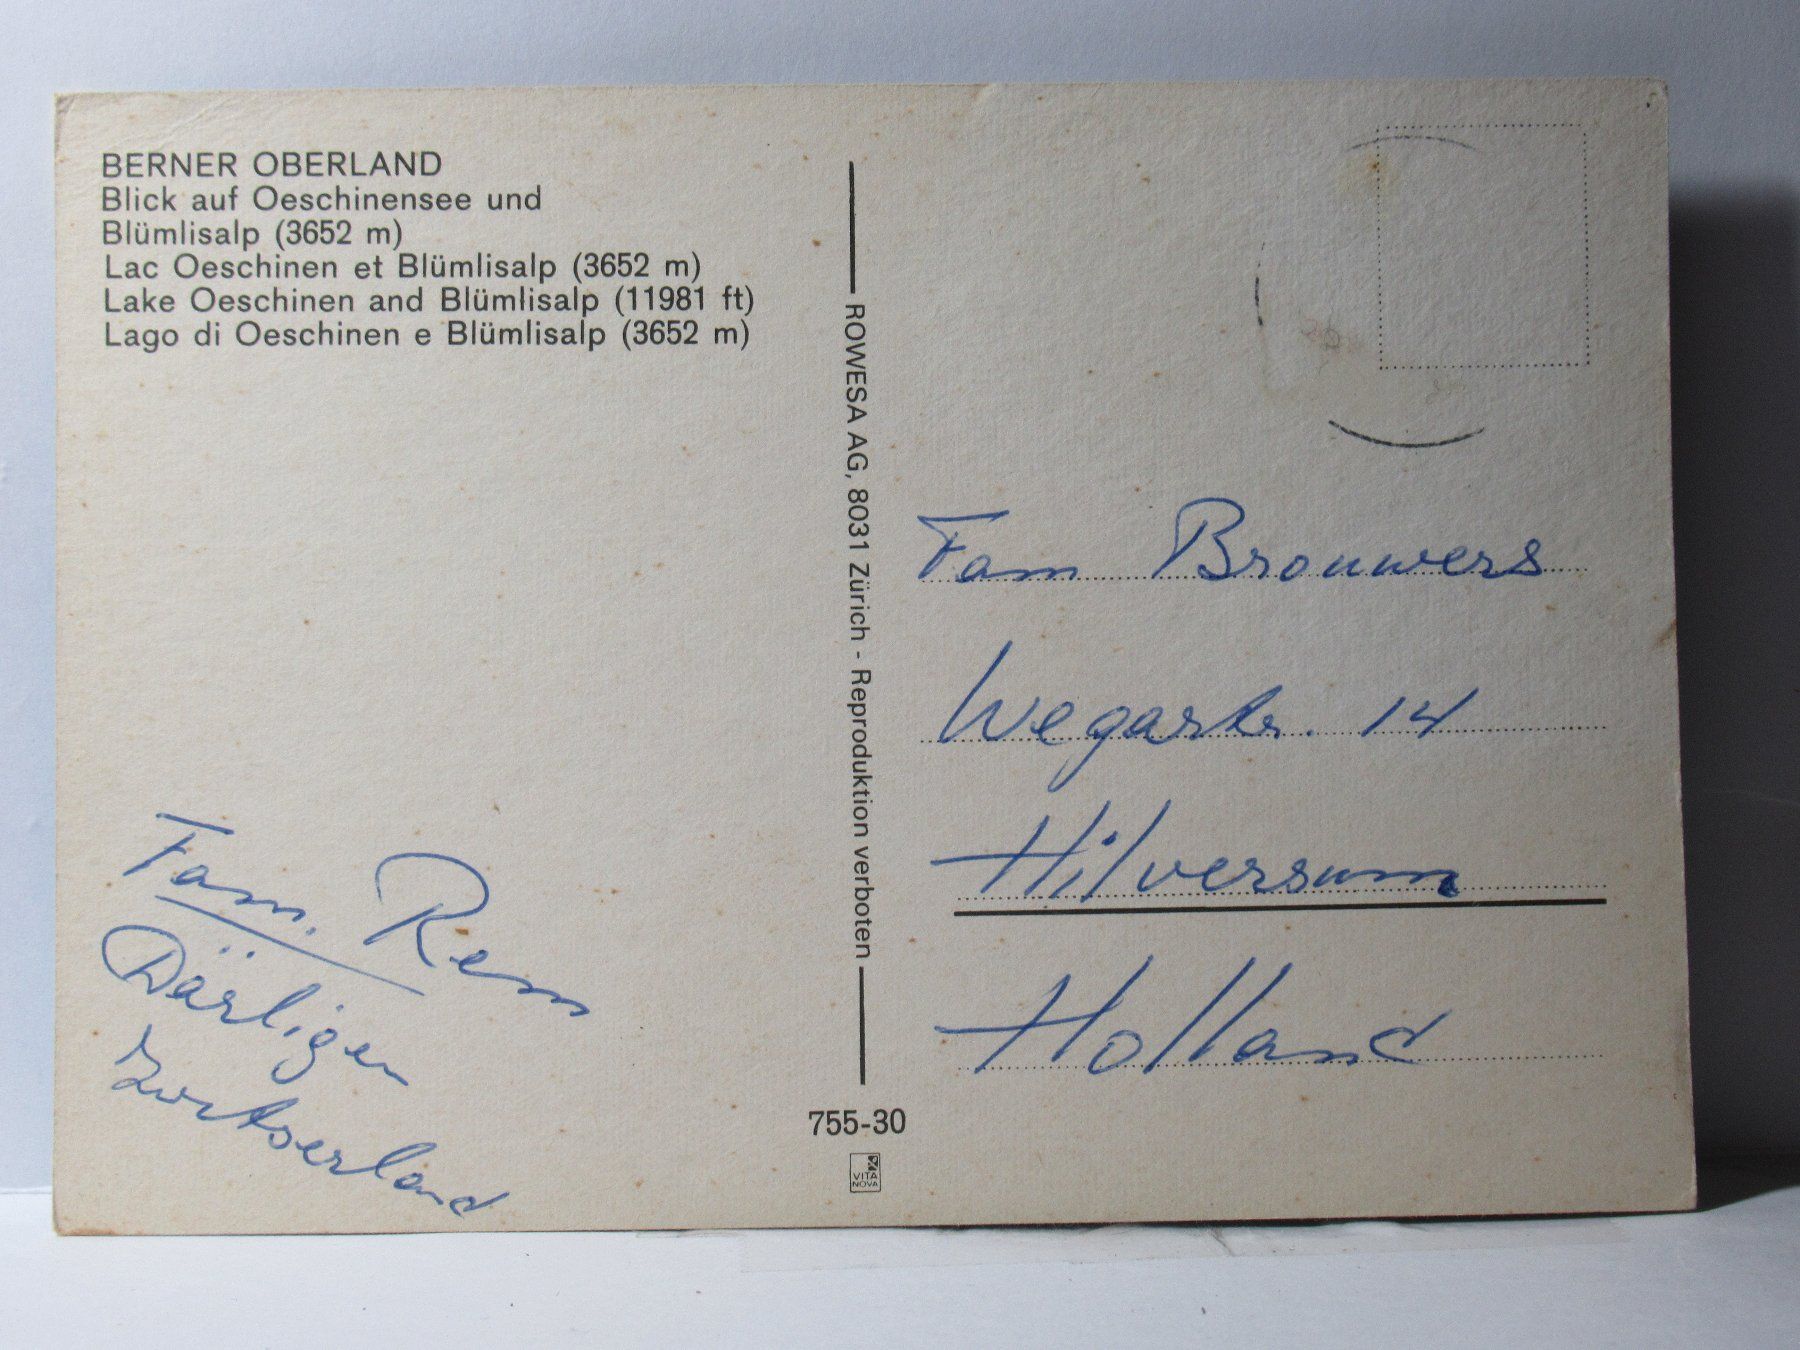 BERNER OBERLAND
Blick auf Oeschinensee und
Blümlisalp (3652 m)
Lac Oeschinen et Blümlisalp (3652 m)
Lake Oeschinen and Blümlisalp (11981 ft)
Lago di Oeschinen e Blümlisalp (3652 m)
Fam. Rem
Därligen
Zwitserland
ROWESA AG, 8031 Zürich - Reproduktion verboten
755-30
VITA
NOVA
Fam Brouwers
14
Hilversum
Holland